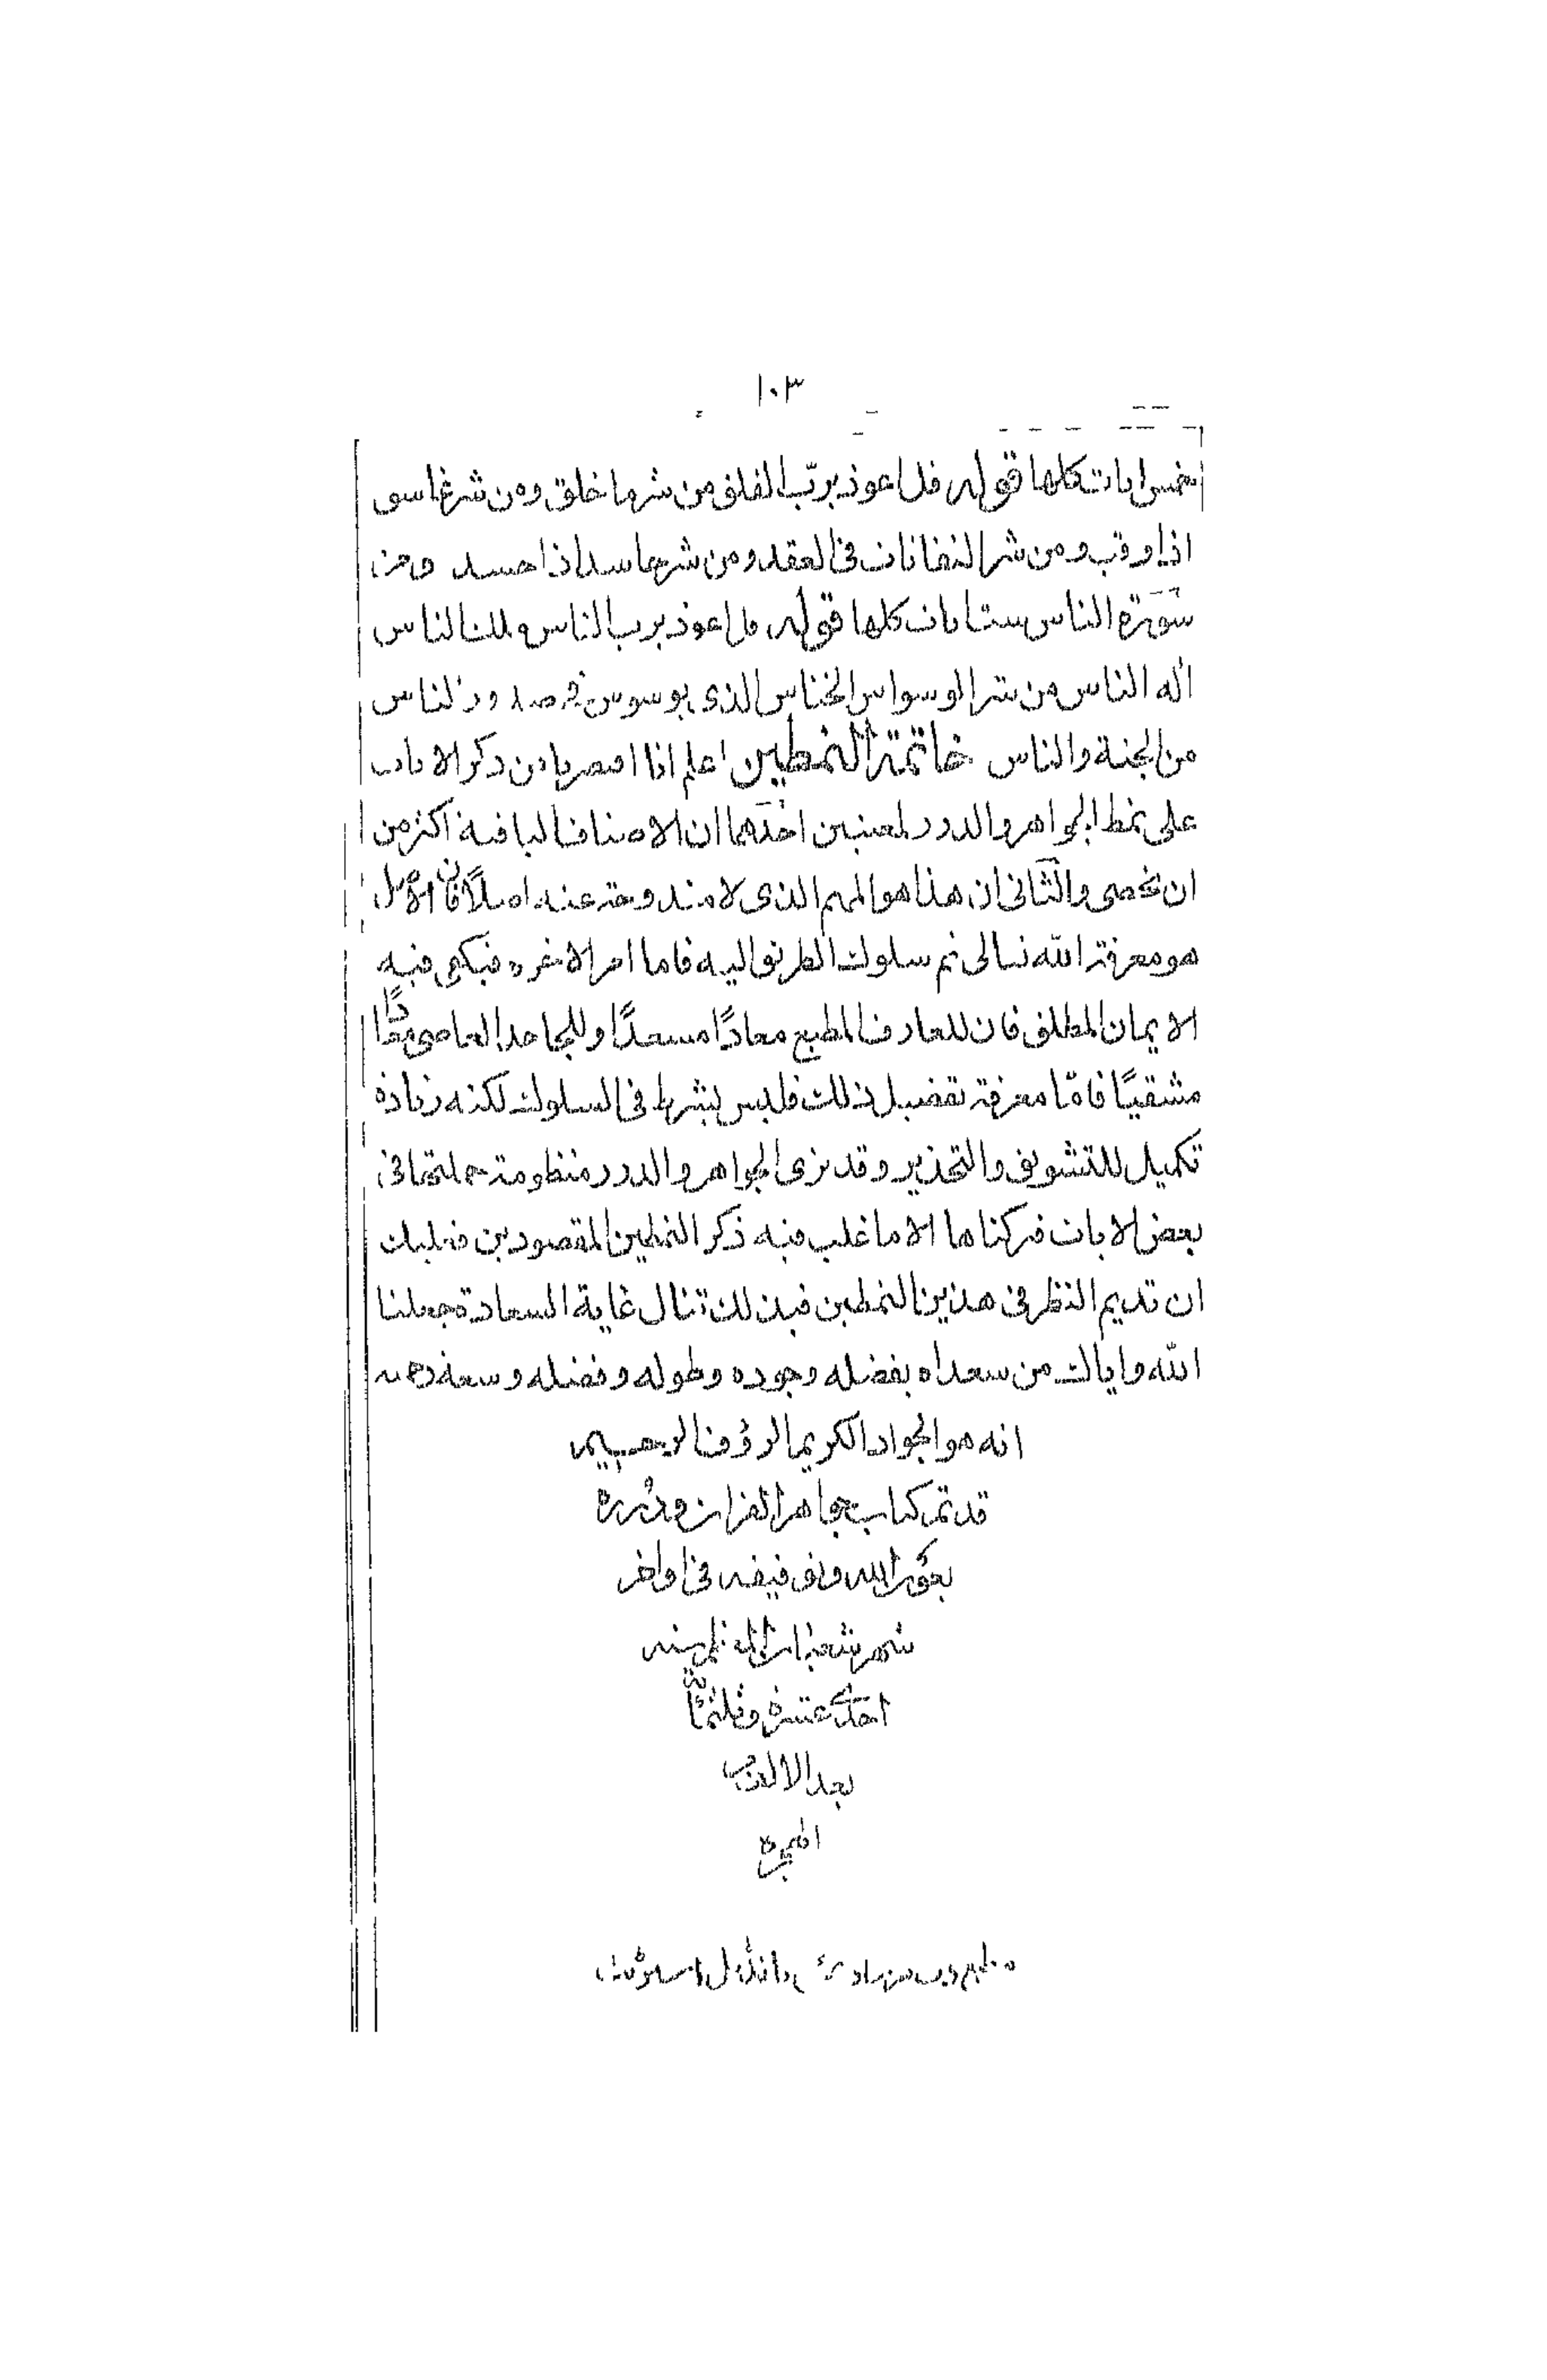 ١٠٣
خمس ايات كلها قوله قل اعوذ بربّ الفلق من شر ما خلق ومن شر غاسق
اذا وقب ومن شر النفاثات في العقد ومن شر حاسد اذا حسد ومن
سورة الناس ست ايات كلها قوله قل اعوذ برب الناس ملك الناس
اله الناس من شر الوسواس الخناس الذى يوسوس فى صدور الناس
من الجنة والناس خاتمة النمطين اعلم انا اقتصرنا من ذكر الايات
على نمط الجواهر والدرر لمعنيين احدهما ان الاصناف الباقية اكثر من
ان تحصى والثانى ان هذا هو المهم الذى لا مندوحة عنه اصلاً فان الاصل
هو معرفة الله تعالى ثم سلوك الطريق اليه فاما امر الاخرة فيكفى فيه
الايمان المطلق فان للعارف المطيع معادًا مسعدًا وللجاحد العاصى معادًا
مشقيًا فامّا معرفة تفصيل ذلك فليس بشرط فى السلوك لكنه زيادة
تكميل للتشويق والتحذير وقد نرى الجواهر والدرر منظومة جملتها فى
بعض الايات فتركناها الا ما غلب فيه ذكر النمطين المقصودين فعليك
ان تديم النظر فى هذين النمطين فبذلك تنال غاية السعادة جعلنا
الله واياك من سعداه بفضله وجوده وطوله وفضله وسعة رحمته
انه هو الجواد الكريم الرؤف الرحيم
قد تم كتاب جواهر القران ودرره
بعون الله وتوفيقه فى اواخر
شهر شعبان المعظم سنه
احدى عشره وثلثمائة
بعد الالف من
الهجرة